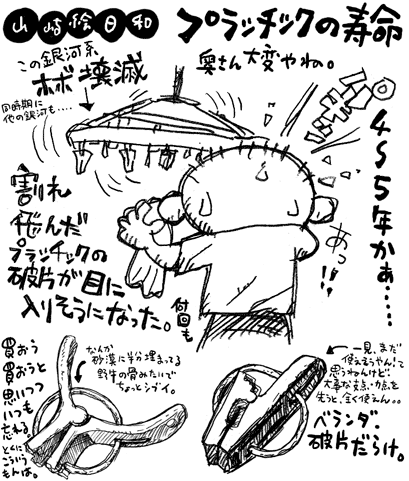 山崎絵日和
プラッチックの寿命
この銀河系
ホボ壊滅
同時期に
他の銀河も‥‥
奥さん大変やね。
4〜5年かぁ……
あっ!!
割れ
飛んだ
プラッチックの
破片が目に
入りそうになった。
何回も
買おう
買おうと
思いつつ
いつも
忘れる。
とくに
こういう
もんは。
なんか
砂漠に半分埋まってる
野牛の骨みたいで
ちょっとシブイ。
一見、まだ
使えそうやん!って
思うねんけど
大事な支点・力点を
失うと、全く使えん。。
ベランダ、
破片だらけ。